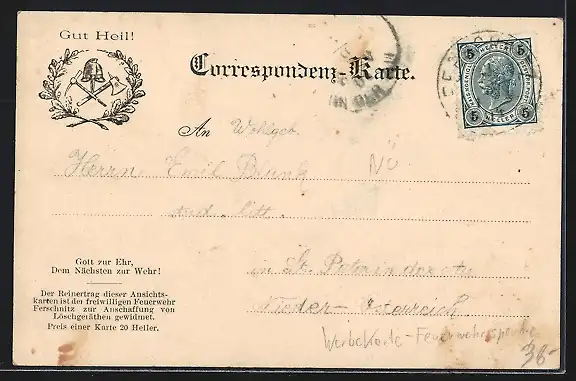 Gut Heil!
Correspondenz-Karte.
5 5
HELLER HELLER
5 5
An Wohlgeb.
Herrn Emil Blunk
NÖ
in St. Peter in der Au
Nieder-Österreich
Gott zur Ehr,
Dem Nächsten zur Wehr!
Der Reinertrag dieser Ansichts-
karten ist der freiwilligen Feuerwehr
Ferschnitz zur Anschaffung von
Löschgeräthen gewidmet.
Preis einer Karte 20 Heller.
Werbekarte - Feuerwehrspende
38-